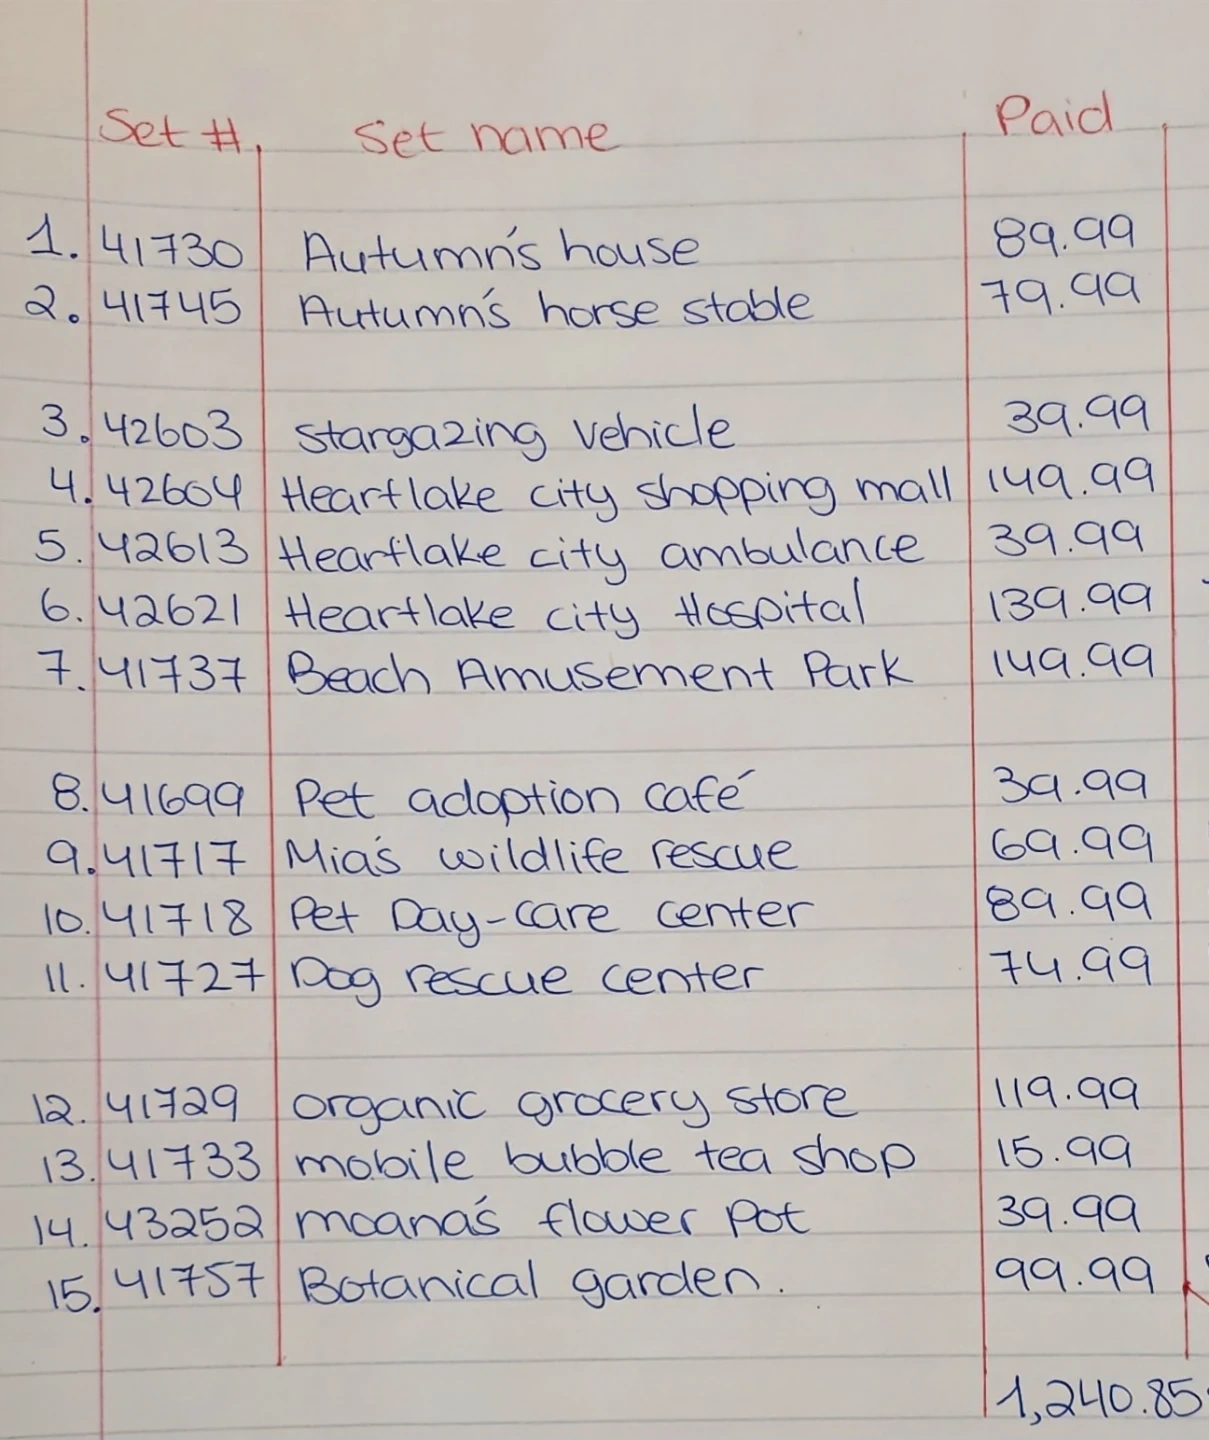 Set # Set name Paid
1. 41730 Autumn's house 89.99
2. 41745 Autumn's horse stable 79.99
3. 42603 stargazing vehicle 39.99
4. 42604 Heartlake city shopping mall 149.99
5. 42613 Heartlake city ambulance 39.99
6. 42621 Heartlake city Hospital 139.99
7. 41737 Beach Amusement Park 149.99
8. 41699 Pet adoption café 39.99
9. 41717 Mia's wildlife rescue 69.99
10. 41718 Pet Day-care center 89.99
11. 41727 Dog rescue center 74.99
12. 41729 organic grocery store 119.99
13. 41733 mobile bubble tea shop 15.99
14. 43252 moana's flower pot 39.99
15. 41757 Botanical garden. 99.99
1,240.85